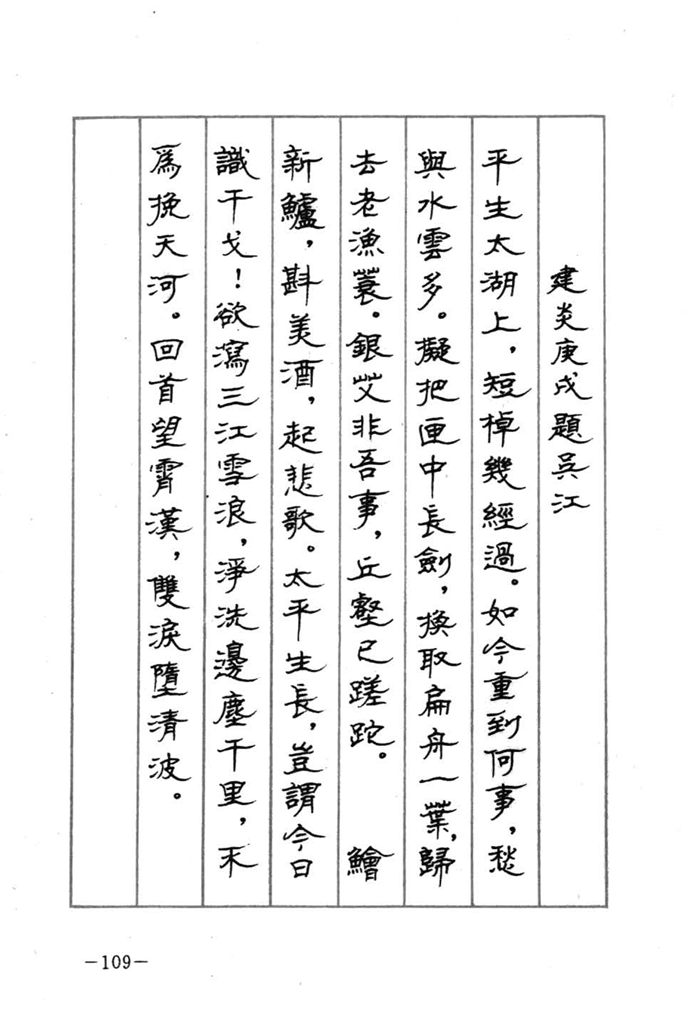 建炎庚戌題吳江
平生太湖上，短棹幾經過。如今重到何事，愁
與水雲多。擬把匣中長劍，換取扁舟一葉，歸
去老漁蓑。銀艾非吾事，丘壑已蹉跎。 鱠
新鱸，斟美酒，起悲歌。太平生長，豈謂今日
識干戈！欲瀉三江雪浪，淨洗邊塵千里，不
爲挽天河。回首望霄漢，雙淚墮清波。
—109—